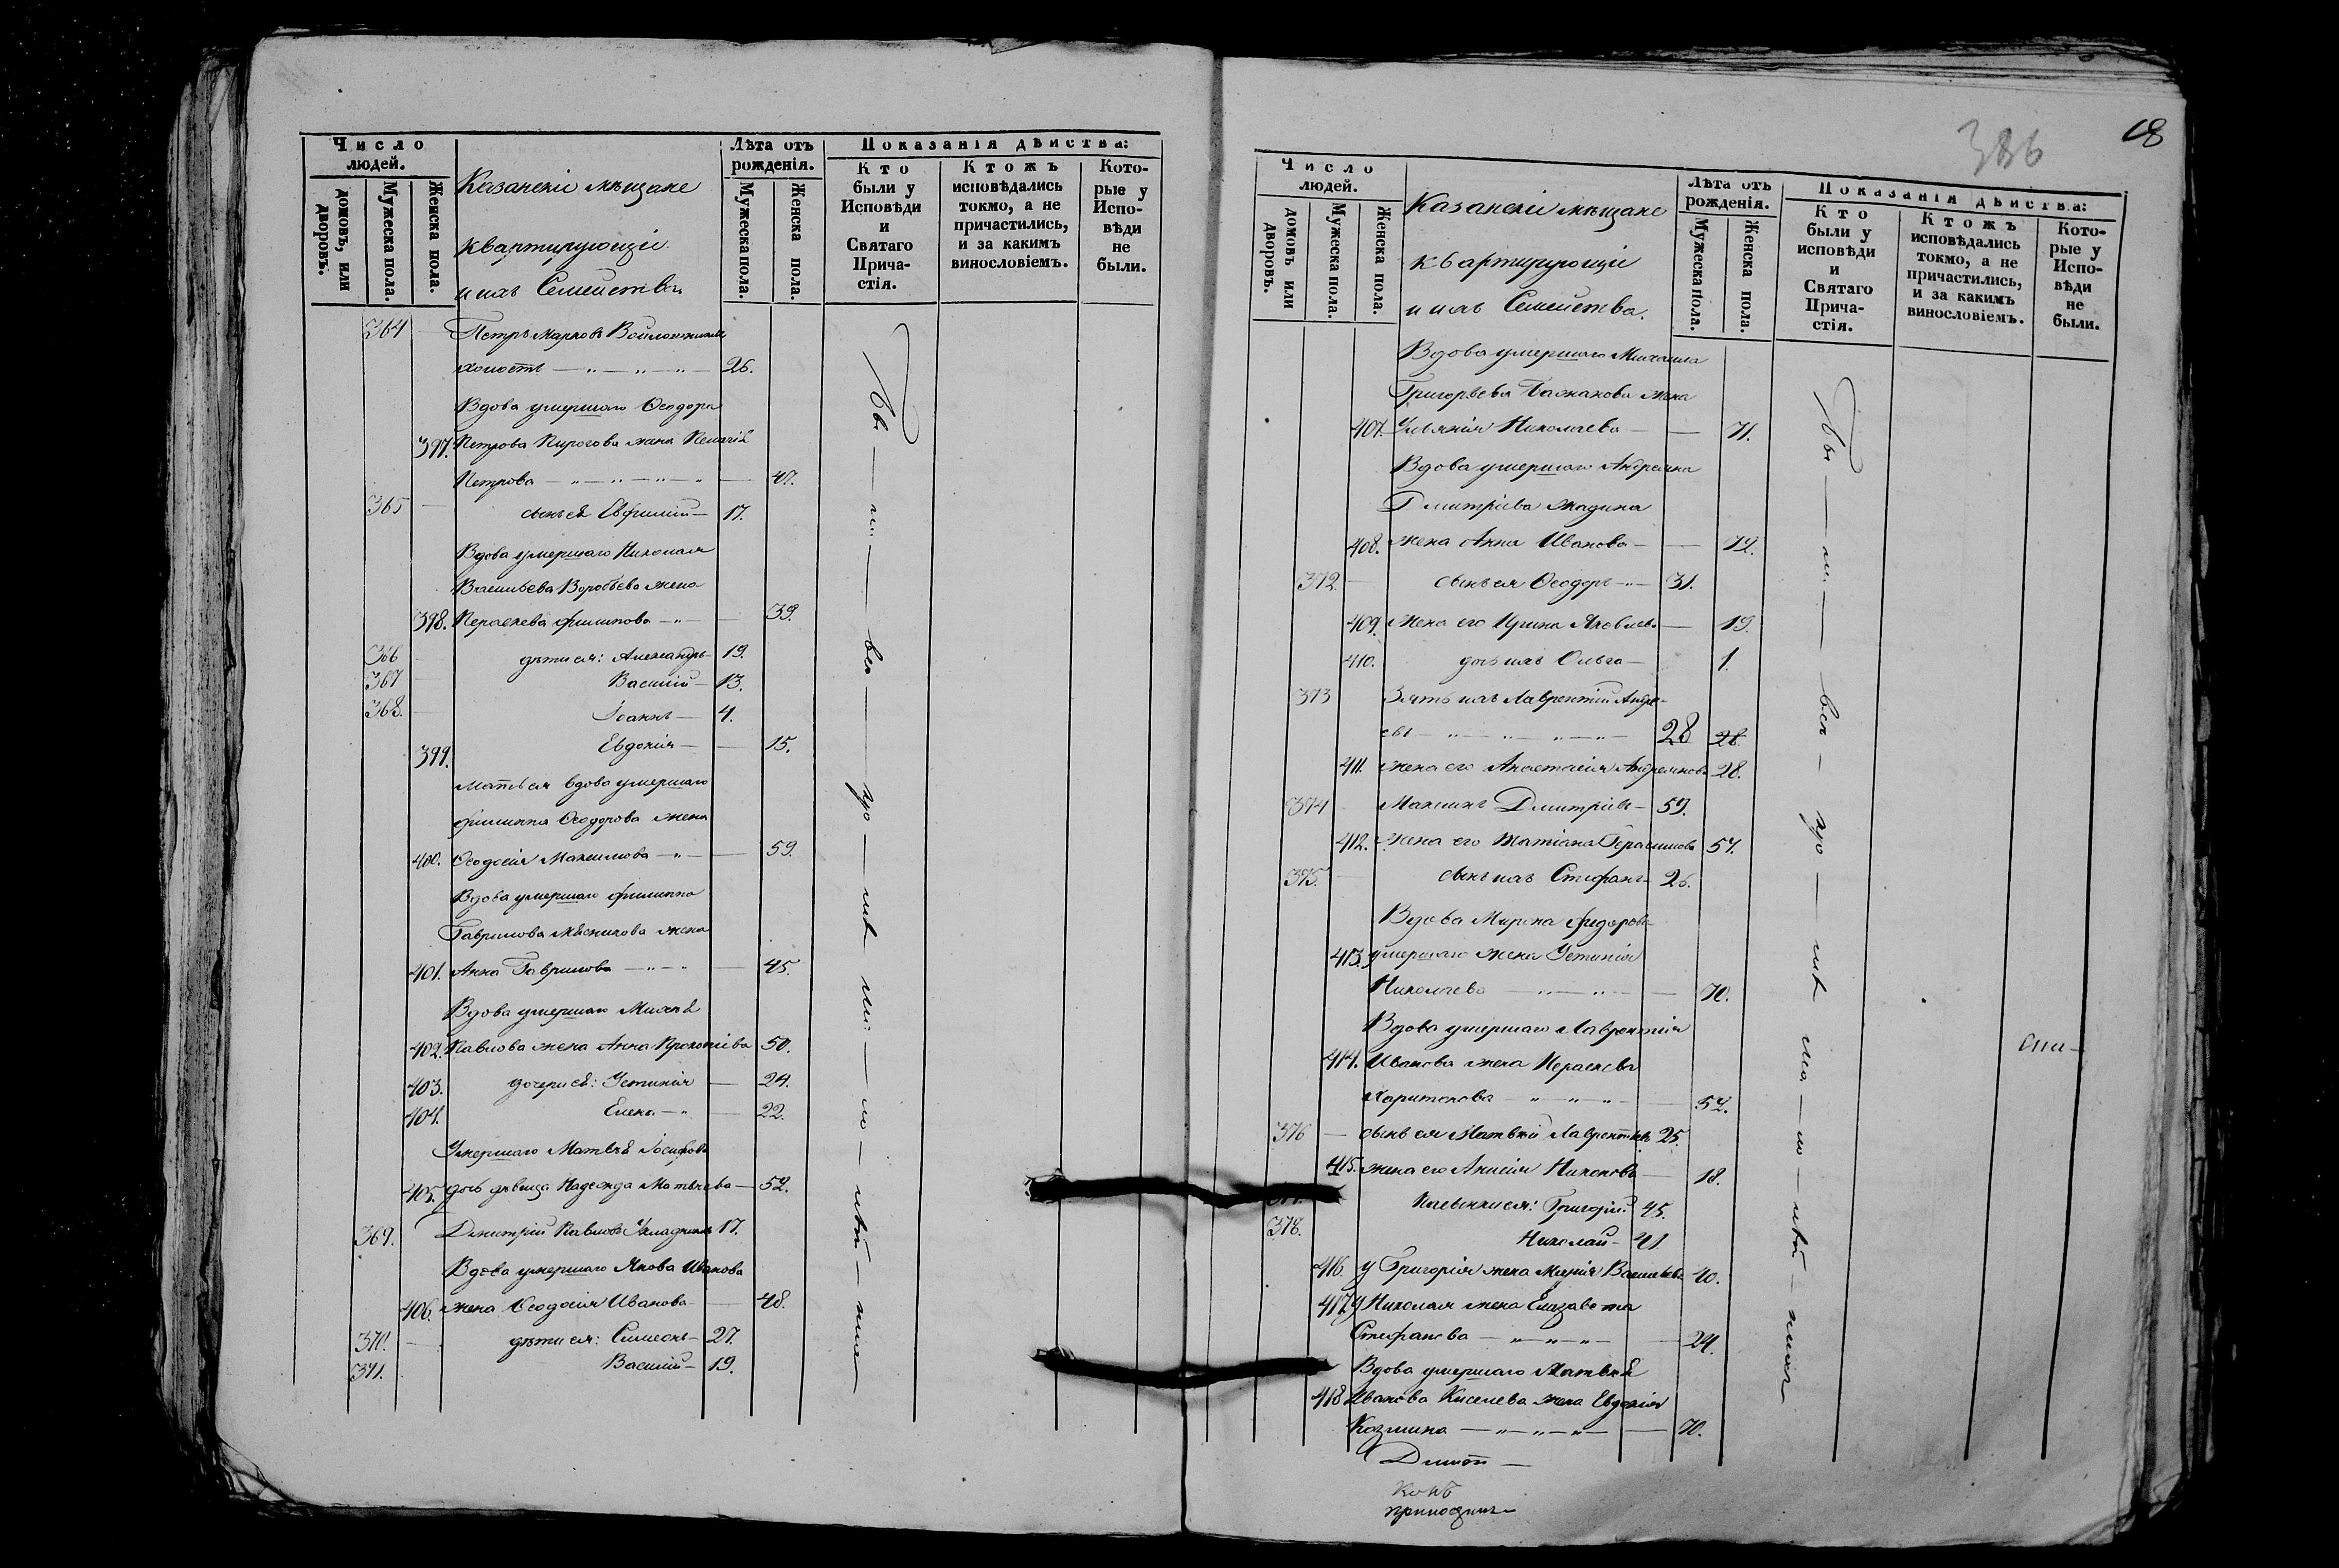 Число людей.
домовъ, или дворовъ.
Мужеска пола.
Женска пола.
Казанскіе мѣщане
квартирующіе
и ихъ Семейства
Лѣта отъ рожденія.
Мужеска пола.
Женска пола.
Показанія дѣйства:
Кто были у Исповѣди и Святаго Причастія.
Ктожъ исповѣдались токмо, а не причастились, и за какимъ винословіемъ.
Которые у Исповѣди не были.
364 Петръ Марковъ
холостъ — 26.
Вдова умершаго Ѳеодора
397. Петрова Пирогова жена Пелагія
Петрова — 47.
365 сынъ ея Евфимій — 17.
Вдова умершаго Николая
Васильева Воробьева жена
398. Параскева Филипова — 39.
366 дѣти ея: Александръ — 19.
367 Василій — 13.
368. Іоаннъ — 4.
399. Евдокія — 15.
Мать ея вдова умершаго
Филиппа Ѳеодорова жена
400. Ѳеодосія Максимова — 59.
Вдова умершаго Филиппа
Гаврилова Мясникова жена
401. Анна Гаврилова — 45.
Вдова умершаго
402. Павлова жена Анна Прокопіева 50.
403. дочери ея: Устинія — 24.
404. Елена — 22.
Умершаго Матвѣя Іосифова
405. дочь дѣвица Надежда Матвѣева — 52.
369. Димитрій Павловъ 17.
Вдова умершаго Якова Иванова
406. жена Ѳеодосія Иванова — 48.
370. дѣти ея: Симеонъ — 27.
371. Василій — 19.
386
18
Число людей.
домовъ или дворовъ.
Мужеска пола.
Женска пола.
Казанскіе мѣщане
квартирующіе
и ихъ Семейства.
Лѣта отъ рожденія.
Мужеска пола.
Женска пола.
Показанія дѣйства:
Кто были у исповѣди и Святаго Причастія.
Ктожъ исповѣдались токмо, а не причастились, и за какимъ винословіемъ.
Которые у Исповѣди не были.
Вдова умершаго Михаила
Григорьева жена
407. Николаева — 71.
Вдова умершаго Андреяна
Дмитріева
408. жена Анна Иванова — 72.
372. сынъ ея Ѳеодоръ — 31.
409. жена его Ирина Яковлева — 19.
410. дочь ихъ Ольга — 1.
373 Зять ихъ Лаврентій Андре-
евъ — 28 28
411. жена его Анастасія Андреянова 28.
374 Максимъ Дмитріевъ — 59.
412. жена его Татіана Герасимова 57.
375. сынъ ихъ Стефанъ — 26.
Вдова Мирона Федорова
413. умершаго жена Устинія
Николаева — 70.
Вдова умершаго Лаврентія
414. Иванова жена Параскева
Харитонова — 52.
376 — сынъ ея Матвѣй Лаврентьевъ 25.
415. жена его Анисія Никонова — 18.
Пасынки ея: Григорій 45.
378. Николай — 41
416. у Григорія жена Марія Васильева 40.
417. у Николая жена Елизавета
Стефанова — 24.
Вдова умершаго Матвѣя
418 Иванова Киселева жена Евдокія
Козмина — 70.